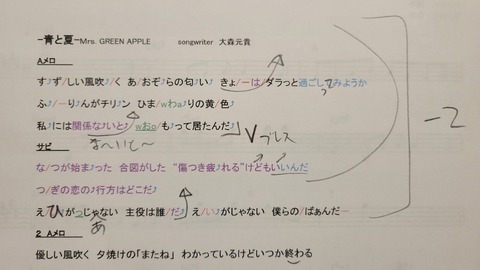 -青と夏-Mrs. GREEN APPLE songwriter 大森元貴
Aメロ
す♪ず/しい風吹♪/く あ/おぞ♪らの匂♪い きょ/ーは/ダラっと過ごし♪てみようか
って
ふ♪/ーり♪んがチリ♪ン ひま/wわa♪りの黄/色♪
私♪には関係な♪いと♪ wおo/も♪って居たんだ♪
V ブレス
サビ
な/つが始ま♪った 合図がした “傷つき疲♪れる”けどもいいんだ
つ/ぎの恋の♪行方はどこだ♪
え/ひがっじゃない 主役は誰/だ♪ え/い♪がじゃない 僕らの/ばぁんだー
あ
-2
2 Aメロ
優しい風吹く 夕焼けの「またね」 わかっているけどいつか終わる